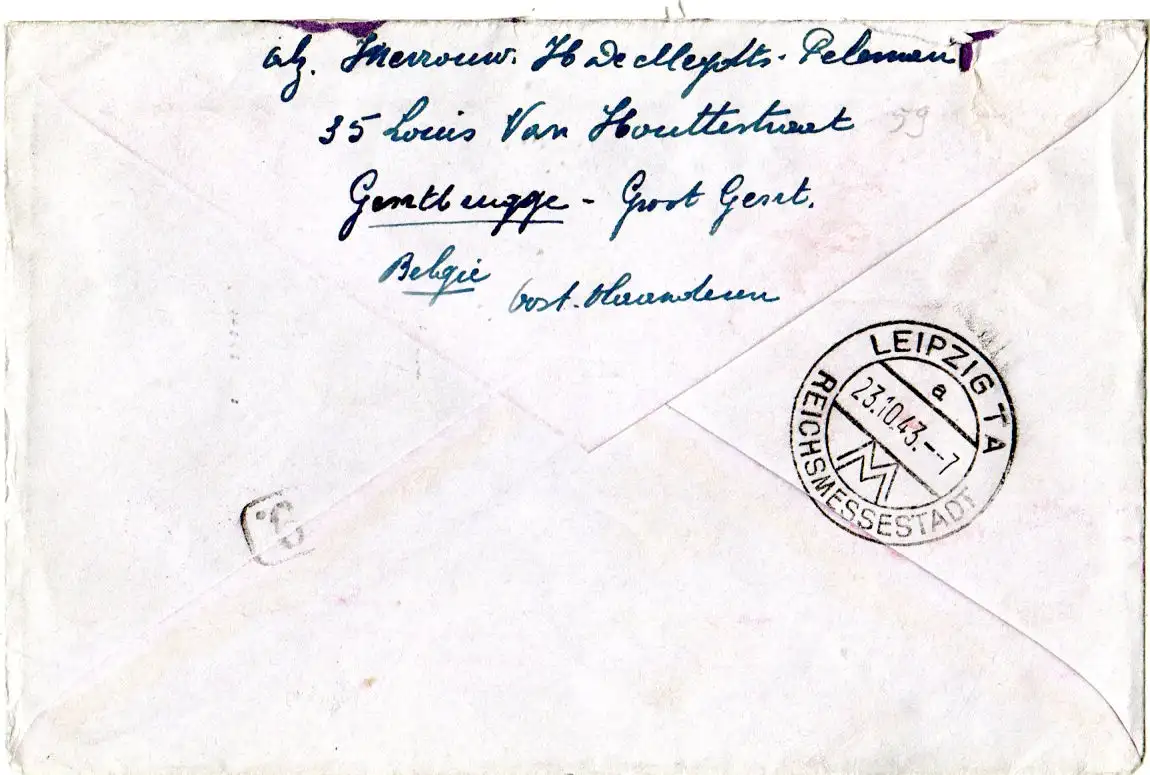 afz. Mevrouw. H De Meyst's - Peleman
35 Louis Van Houttestraat
59
Gentbrugge - Groot Gent.
België
Oost. Vlaanderen
LEIPZIG TA
a
23.10.43.--7
REICHSMESSESTADT